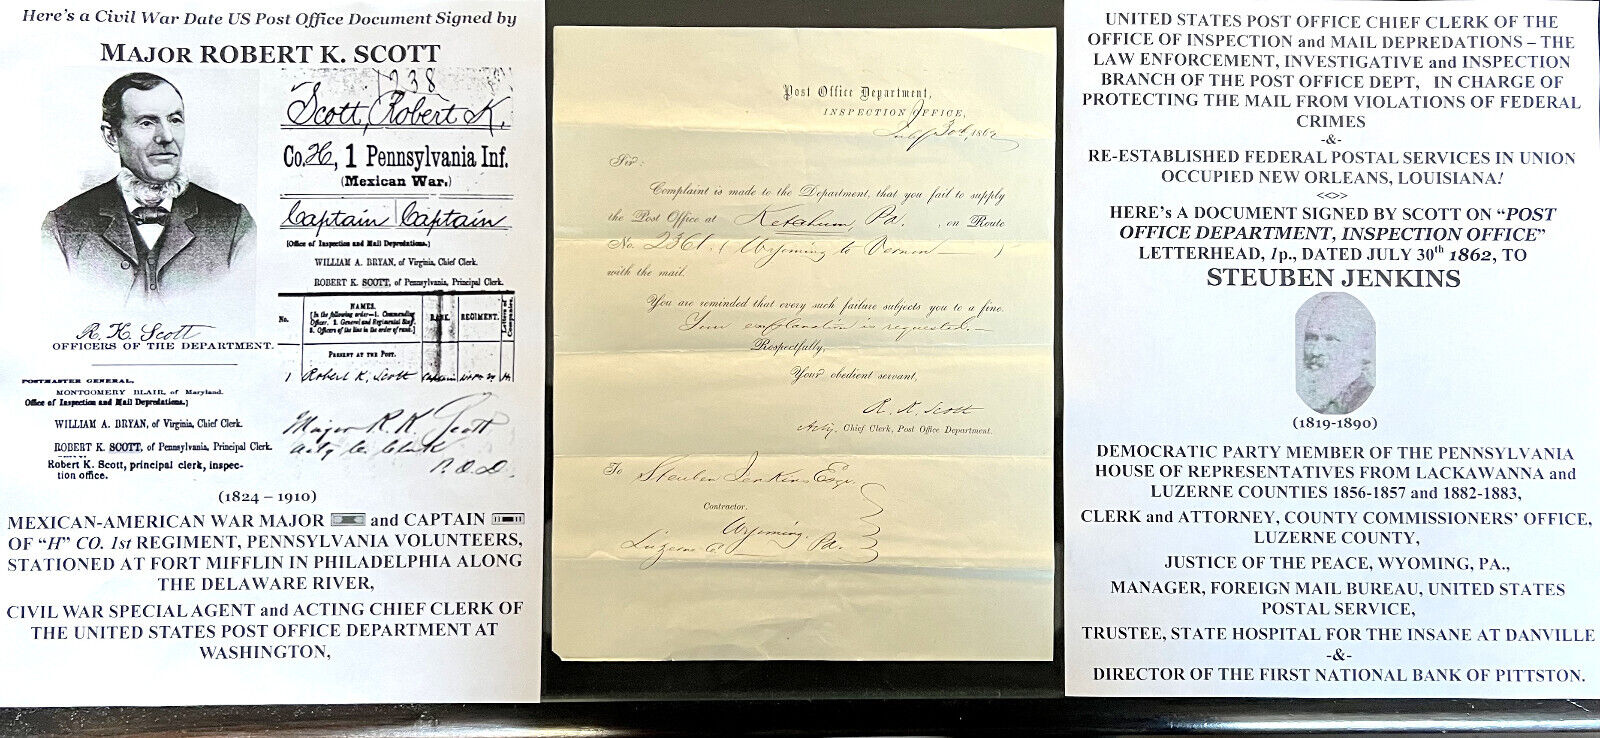 Here's a Civil War Date US Post Office Document Signed by
MAJOR ROBERT K. SCOTT
1238
Scott, Robert K.
Co. H, 1 Pennsylvania Inf.
(Mexican War.)
Captain Captain
(Office of Inspection and Mail Depredations.)
WILLIAM A. BRYAN, of Virginia, Chief Clerk.
ROBERT K. SCOTT, of Pennsylvania, Principal Clerk.
No.
NAMES.
[In the following order—1. Commanding
Officer. 2. General and Regimental Staff.
3. Officers of the line in the order of rank.]
RANK.
REGIMENT.
Letters of
Companies.
PRESENT AT THE POST.
1 Robert K. Scott Captain
R. K. Scott
OFFICERS OF THE DEPARTMENT.
POSTMASTER GENERAL,
MONTGOMERY BLAIR, of Maryland.
Office of Inspection and Mail Depredations.)
WILLIAM A. BRYAN, of Virginia, Chief Clerk.
ROBERT K. SCOTT, of Pennsylvania, Principal Clerk.
Robert K. Scott, principal clerk, inspec-
tion office.
Major R. K. Scott
actg Ch. Clerk
P.O.D.
(1824 – 1910)
MEXICAN-AMERICAN WAR MAJOR and CAPTAIN
OF “H” CO. 1st REGIMENT, PENNSYLVANIA VOLUNTEERS,
STATIONED AT FORT MIFFLIN IN PHILADELPHIA ALONG
THE DELAWARE RIVER,
CIVIL WAR SPECIAL AGENT and ACTING CHIEF CLERK OF
THE UNITED STATES POST OFFICE DEPARTMENT AT
WASHINGTON,
Post Office Department,
INSPECTION OFFICE,
July 30th, 1862
Sir:
Complaint is made to the Department, that you fail to supply
the Post Office at Ketchum, Pa. , on Route
No. 2361 ( Wyoming to Vernon )
with the mail.
You are reminded that every such failure subjects you to a fine.
Your explanation is requested.
Respectfully,
Your obedient servant,
R. K. Scott
Actg. Chief Clerk, Post Office Department.
To Steuben Jenkins Esqr.
Contractor.
Wyoming.
Luzerne Co. Pa.
UNITED STATES POST OFFICE CHIEF CLERK OF THE
OFFICE OF INSPECTION and MAIL DEPREDATIONS – THE
LAW ENFORCEMENT, INVESTIGATIVE and INSPECTION
BRANCH OF THE POST OFFICE DEPT, IN CHARGE OF
PROTECTING THE MAIL FROM VIOLATIONS OF FEDERAL
CRIMES
-&-
RE-ESTABLISHED FEDERAL POSTAL SERVICES IN UNION
OCCUPIED NEW ORLEANS, LOUISIANA!
<<>>
HERE's A DOCUMENT SIGNED BY SCOTT ON “POST
OFFICE DEPARTMENT, INSPECTION OFFICE”
LETTERHEAD, 1p., DATED JULY 30th 1862, TO
STEUBEN JENKINS
(1819-1890)
DEMOCRATIC PARTY MEMBER OF THE PENNSYLVANIA
HOUSE OF REPRESENTATIVES FROM LACKAWANNA and
LUZERNE COUNTIES 1856-1857 and 1882-1883,
CLERK and ATTORNEY, COUNTY COMMISSIONERS' OFFICE,
LUZERNE COUNTY,
JUSTICE OF THE PEACE, WYOMING, PA.,
MANAGER, FOREIGN MAIL BUREAU, UNITED STATES
POSTAL SERVICE,
TRUSTEE, STATE HOSPITAL FOR THE INSANE AT DANVILLE
-&-
DIRECTOR OF THE FIRST NATIONAL BANK OF PITTSTON.